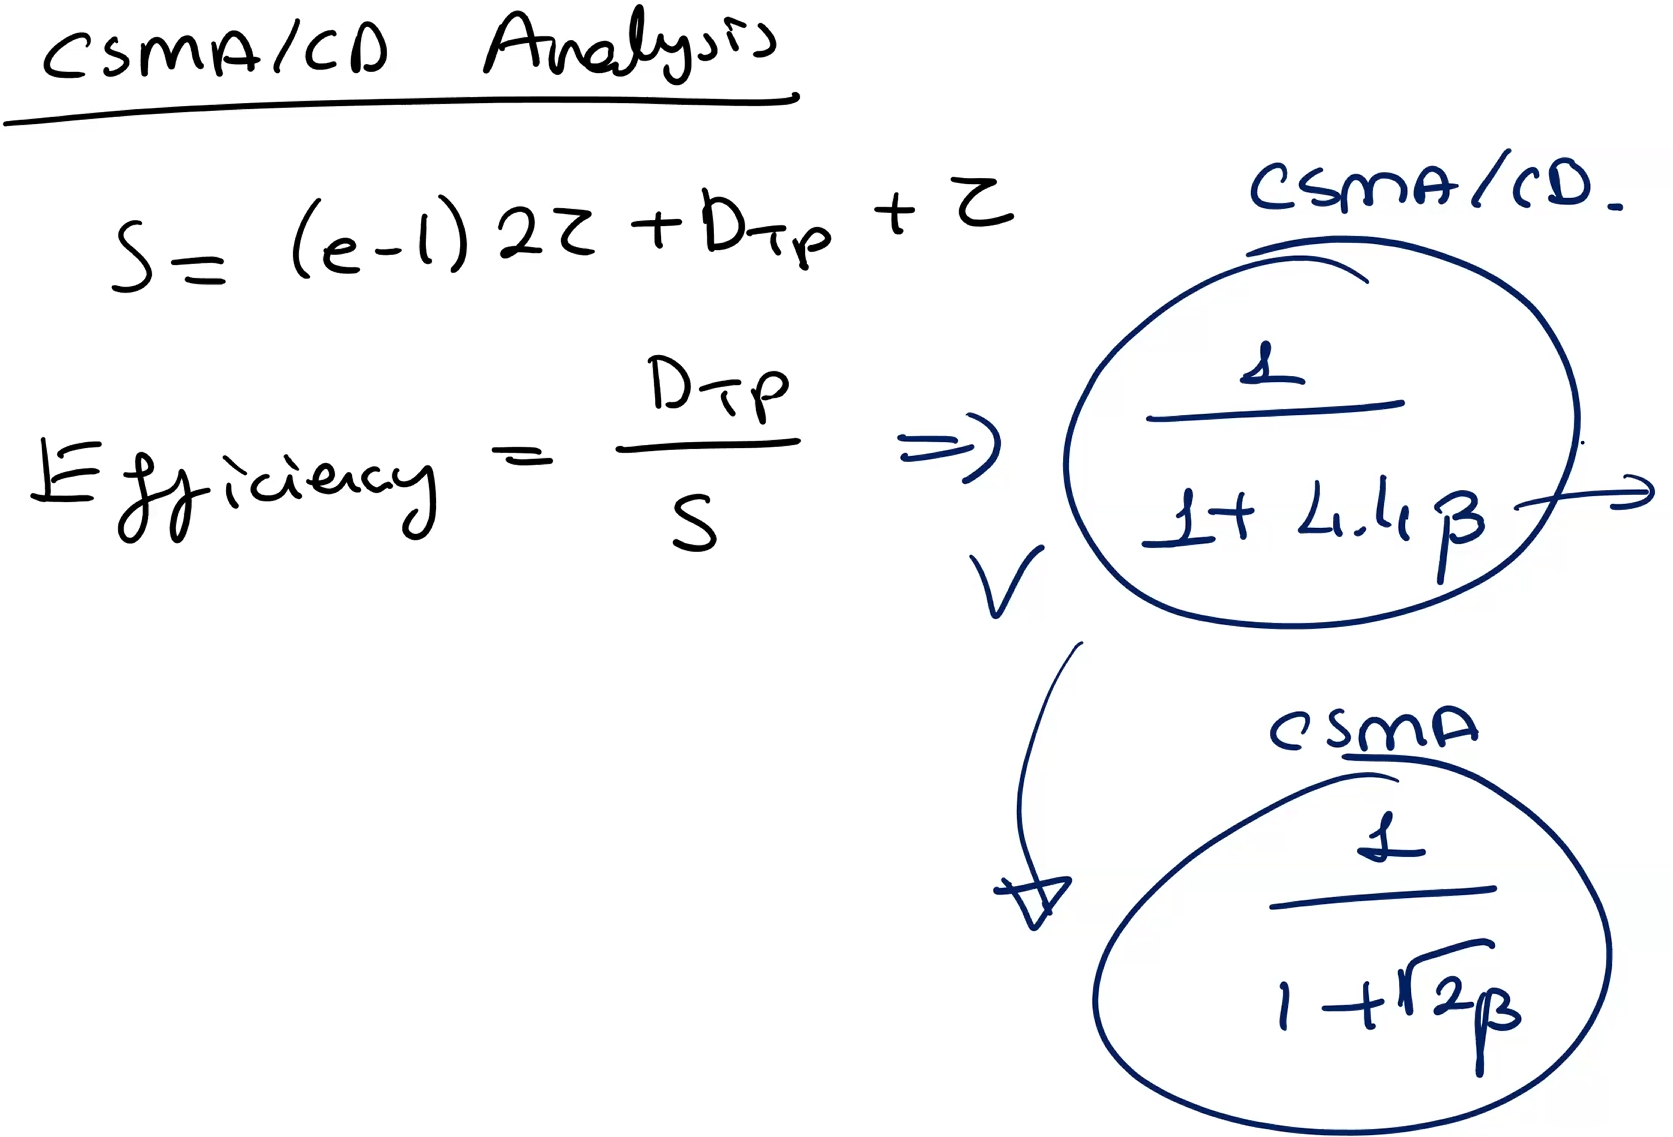 CSMA/CD Analysis
S = (e-1) 2τ + D_TP + τ
Efficiency = D_TP / S ⇒
CSMA/CD.
1 / 1 + 4.4β →
CSMA
1 / 1 + √2β